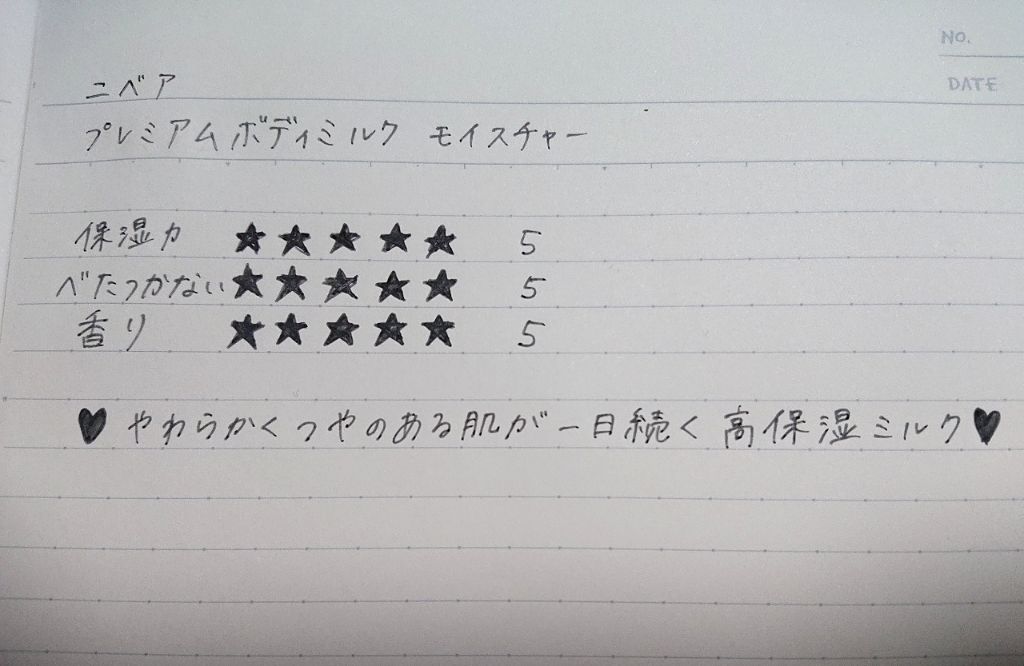 NO.
DATE
ニベア
プレミアムボディミルク モイスチャー
保湿力 ★★★★★ 5
べたつかない ★★★★★ 5
香り ★★★★★ 5
♥ やわらかくつやのある肌が一日続く 高保湿ミルク♥